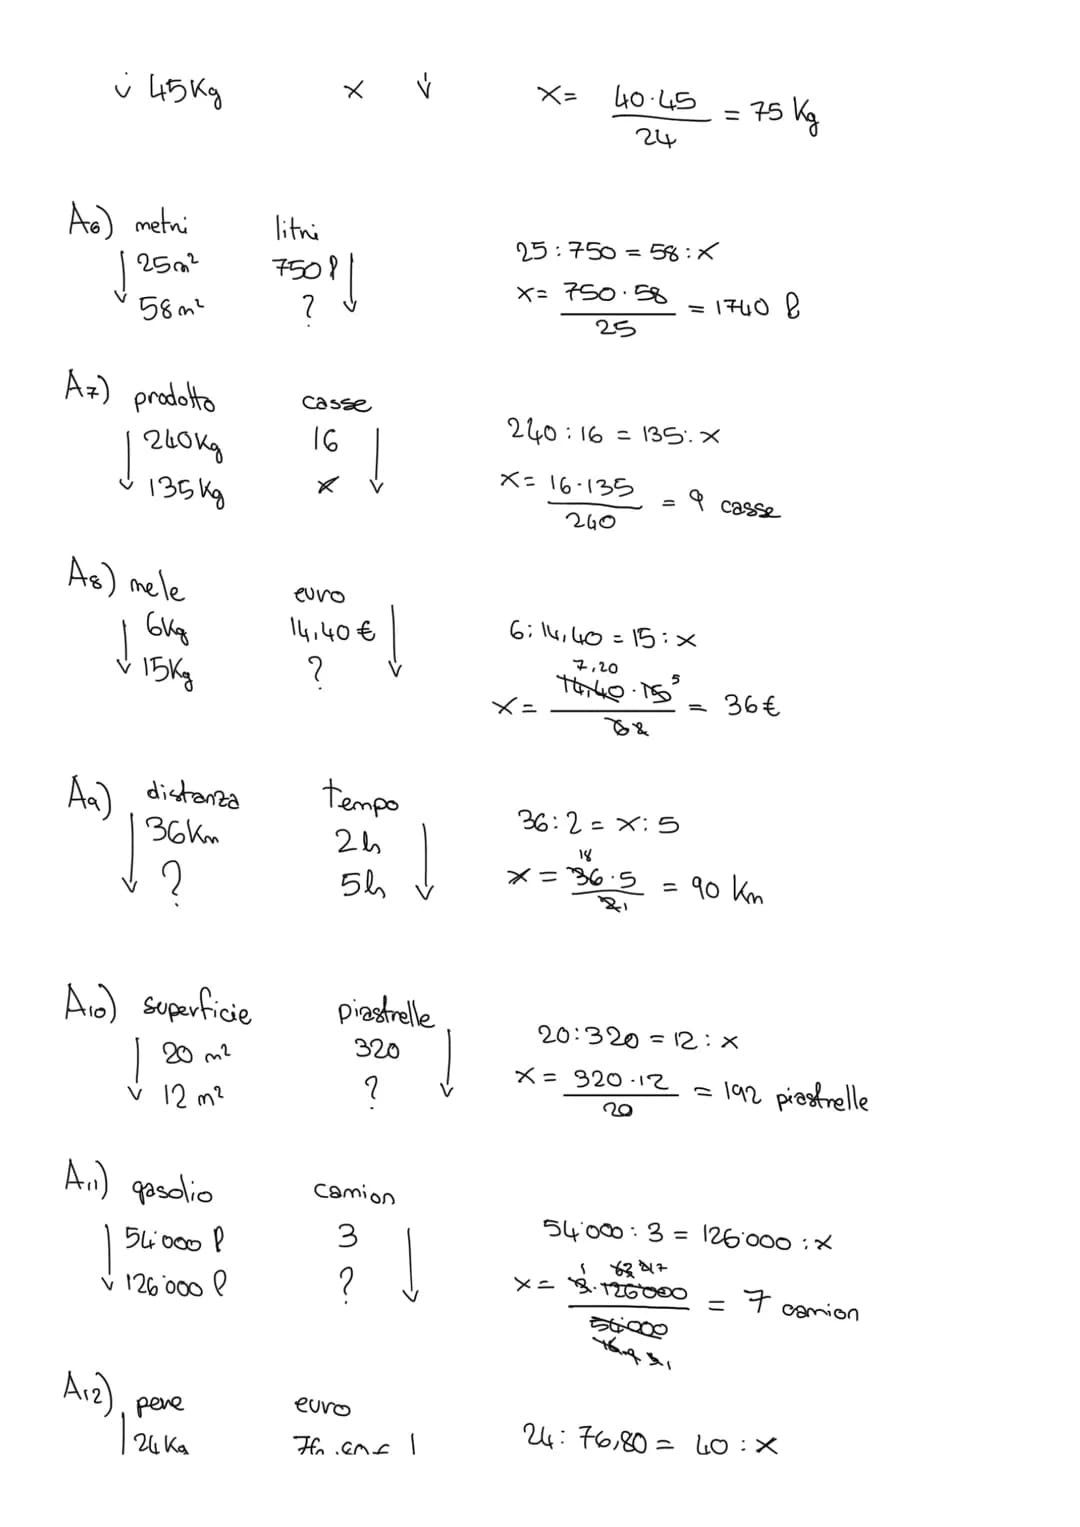 45Kg x x = 40·45 / 24 = 75 Kg
A6) metri litri
25m² 750 l 25 : 750 = 58 : x
58m² ? x = 750·58 / 25 = 1740 l
A7) prodotto casse
240Kg 16 240 : 16 = 135 : x
135Kg x x = 16·135 / 240 = 9 casse
A8) mele euro
6Kg 14,40 € 6 : 14,40 = 15 : x
15Kg ? x = 14,40 7,20 · 15 5 / 6 2 = 36 €
A9) distanza tempo
36Km 2h 36 : 2 = x : 5
? 5h x = 36 18 · 5 / 2 1 = 90 Km
A10) superficie piastrelle
20 m² 320 20 : 320 = 12 : x
12 m² ? x = 320·12 / 20 = 192 piastrelle
A11) gasolio camion
54'000 l 3 54'000 : 3 = 126'000 : x
126'000 l ? x = 3 1 · 126'000 63 21 7 / 54'000 9 3 1 = 7 camion
A12) pere euro
24Kg 24 : 76,80 = 40 : x